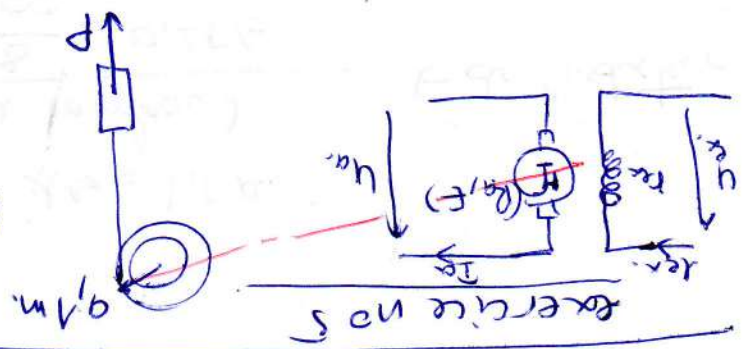 exercice no 5
Iex.
Uex.
rex
Ia
(Ra, E)
M
Ua.
0,1 m.
P